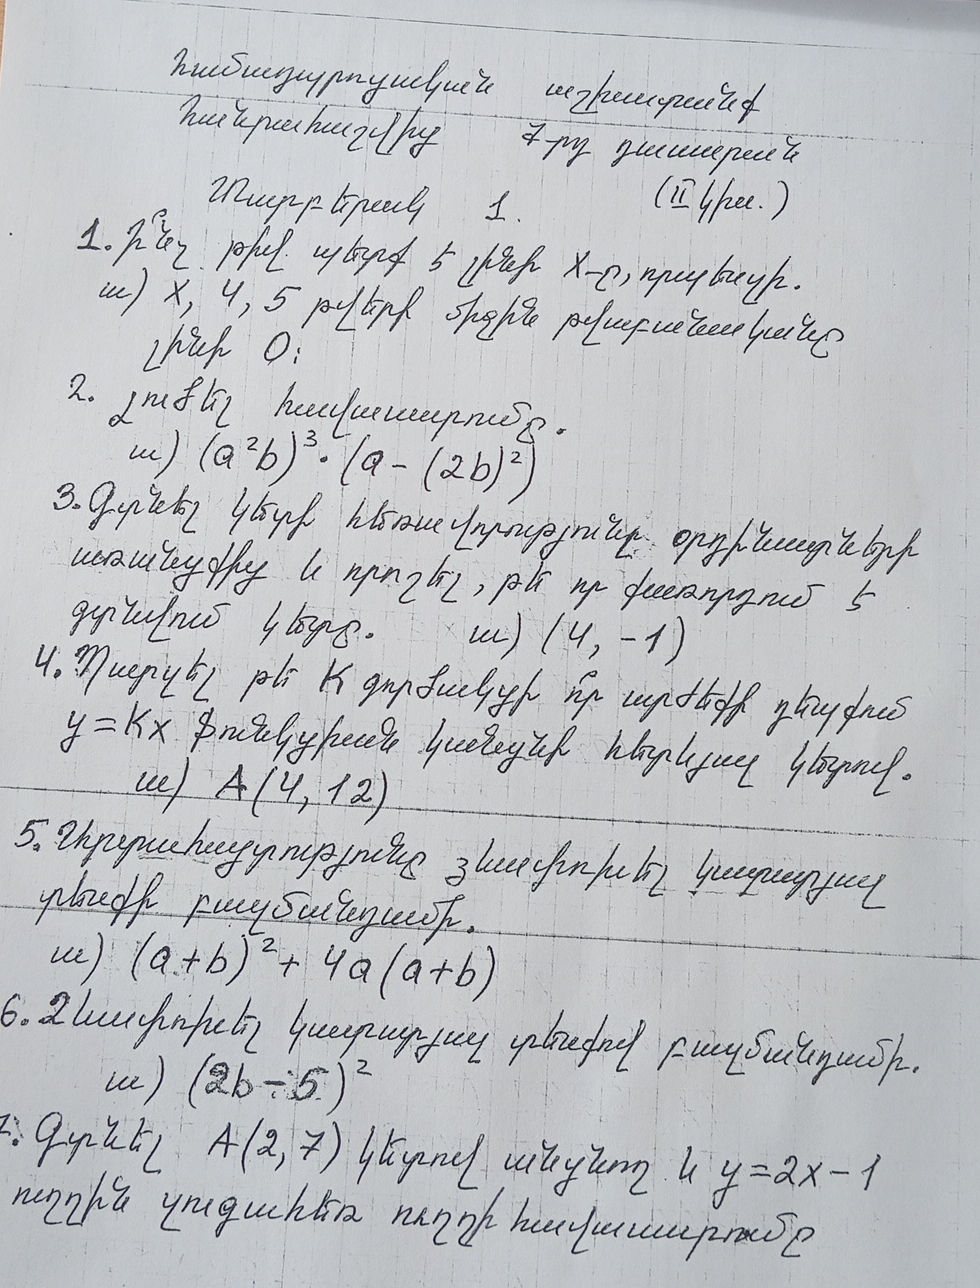 Համադպրոցական աշխատանք
հանրահաշվից 7-րդ դասարան
Տարբերակ 1. (II կիս.)
1. Ի՞նչ թիվ պետք է լինի x-ը, որպեսզի.
ա) x, 4, 5 թվերի միջին թվաբանականը
լինի 0:
2. Լուծել հավասարումը.
ա) (a²b)³ · (a - (2b)²)
3. Գտնել կետի հեռավորությունը օրդինատների
առանցքից և որոշել, թե որ քառորդում է
գտնվում կետը. ա) (4, -1)
4. Պարզել թե K գործակցի ո՞ր արժեքի դեպքում
y=Kx ֆունկցիան կանցնի հետևյալ կետով.
ա) A(4, 12)
5. Արտահայտությունը ձևափոխել կատարյալ
տեսքի բազմանդամի.
ա) (a+b)² + 4a(a+b)
6. Ձևափոխել կատարյալ տեսքով բազմանդամի.
ա) (2b-5)²
7. Գտնել A(2, 7) կետով անցնող և y=2x-1
ուղղին զուգահեռ ուղղի հավասարումը